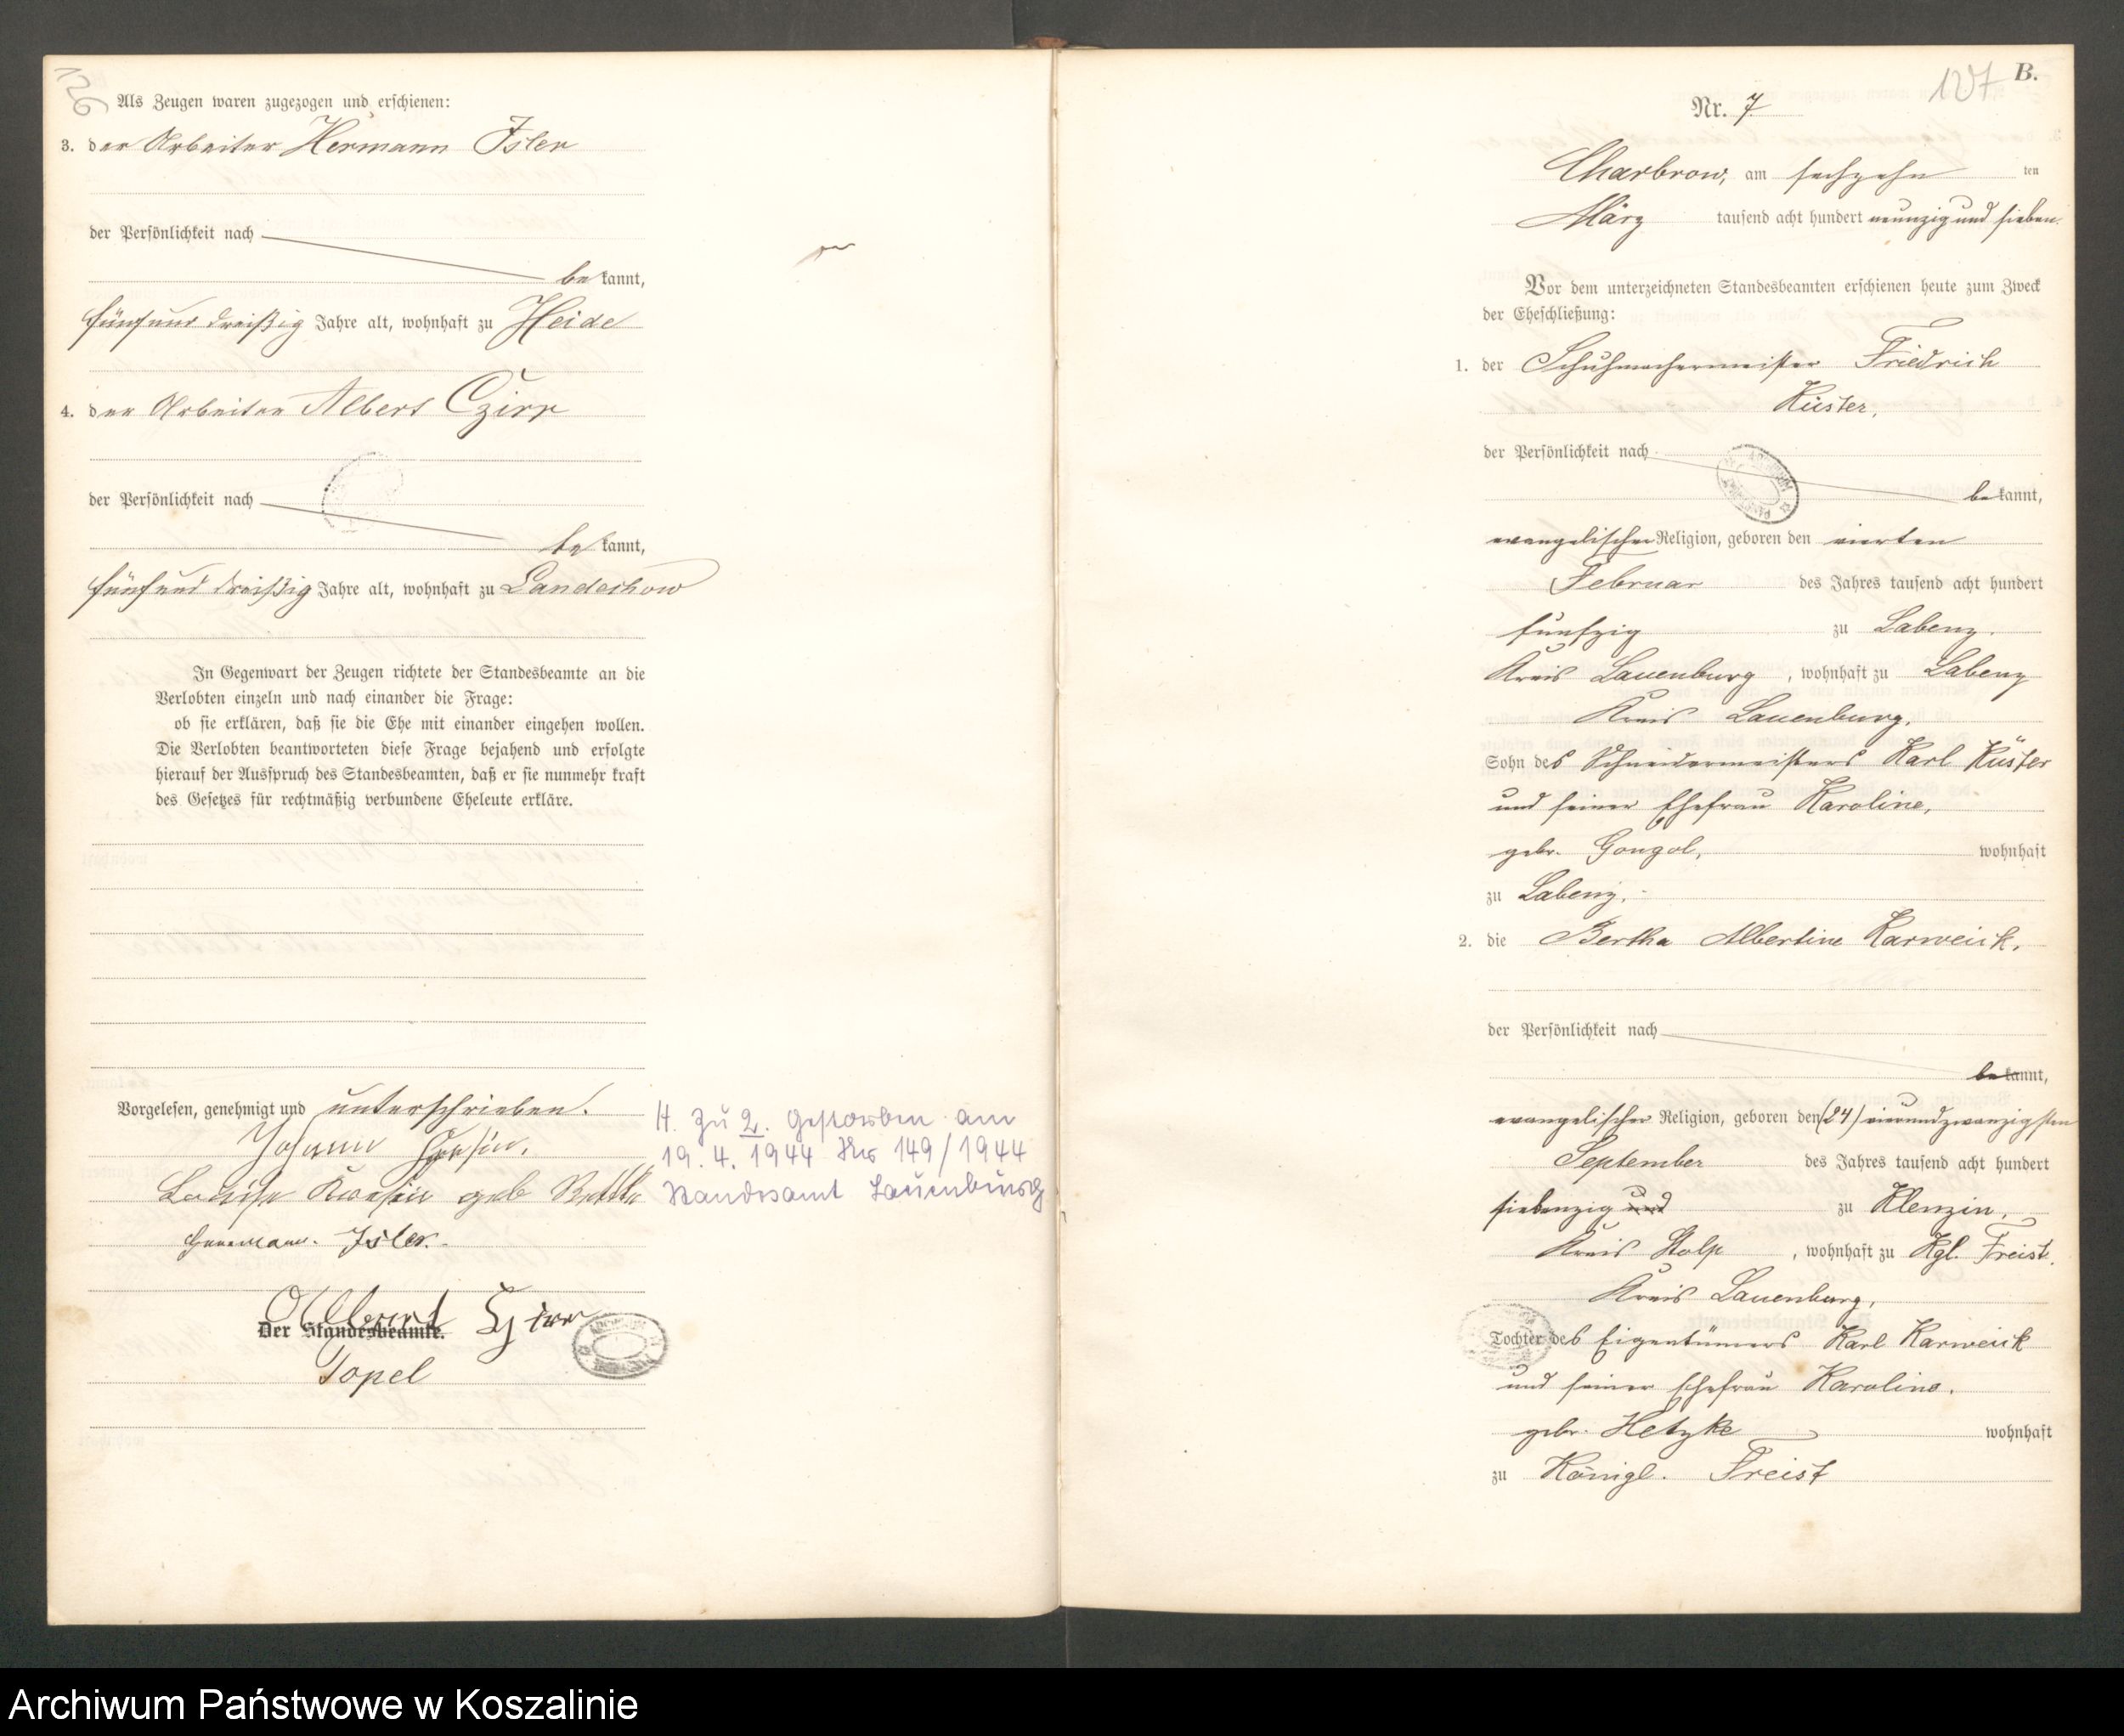 126
Als Zeugen waren zugezogen und erschienen:
3. der Arbeiter Hermann Isler
der Persönlichkeit nach
be kannt,
fünfund dreißig Jahre alt, wohnhaft zu Heide
4. der Arbeiter Albert Czirr
der Persönlichkeit nach
be kannt,
fünfund dreißig Jahre alt, wohnhaft zu Landechow
In Gegenwart der Zeugen richtete der Standesbeamte an die
Verlobten einzeln und nach einander die Frage:
ob sie erklären, daß sie die Ehe mit einander eingehen wollen.
Die Verlobten beantworteten diese Frage bejahend und erfolgte
hierauf der Ausspruch des Standesbeamten, daß er sie nunmehr kraft
des Gesetzes für rechtmäßig verbundene Eheleute erkläre.
Vorgelesen, genehmigt und unterschrieben.
Johann
Louise geb
Hermann. Isler.
Albert Czirr
Der Standesbeamte.
Topel
H. zu 2. gestorben am
19. 4. 1944 Nr 149/1944
Standesamt Lauenburg
127
B.
Nr. 7.
Charbrow, am sechzehn ten
März tausend acht hundert neunzig und sieben.
Vor dem unterzeichneten Standesbeamten erschienen heute zum Zweck
der Eheschließung:
1. der Schuhmachermeister Friedrich
Küster,
der Persönlichkeit nach
be kannt,
evangelischer Religion, geboren den vierten
Februar des Jahres tausend acht hundert
funfzig zu Labenz.
Kreis Lauenburg, wohnhaft zu Labenz
Kreis Lauenburg,
Sohn des Schneidermeisters Karl Küster
und seiner Ehefrau Karoline,
gebr. Gongol, wohnhaft
zu Labenz.
2. die Bertha Albertine Karweick,
der Persönlichkeit nach
be kannt,
evangelischer Religion, geboren den (24) vierundzwanzigsten
September des Jahres tausend acht hundert
siebenzig und zu Klenzin,
Kreis Stolp, wohnhaft zu Kgl. Freist.
Kreis Lauenburg,
Tochter des Eigentümers Karl Karweick
und seiner Ehefrau Karoline.
gebr. Hetzke wohnhaft
zu Königl. Freist
Archiwum Państwowe w Koszalinie